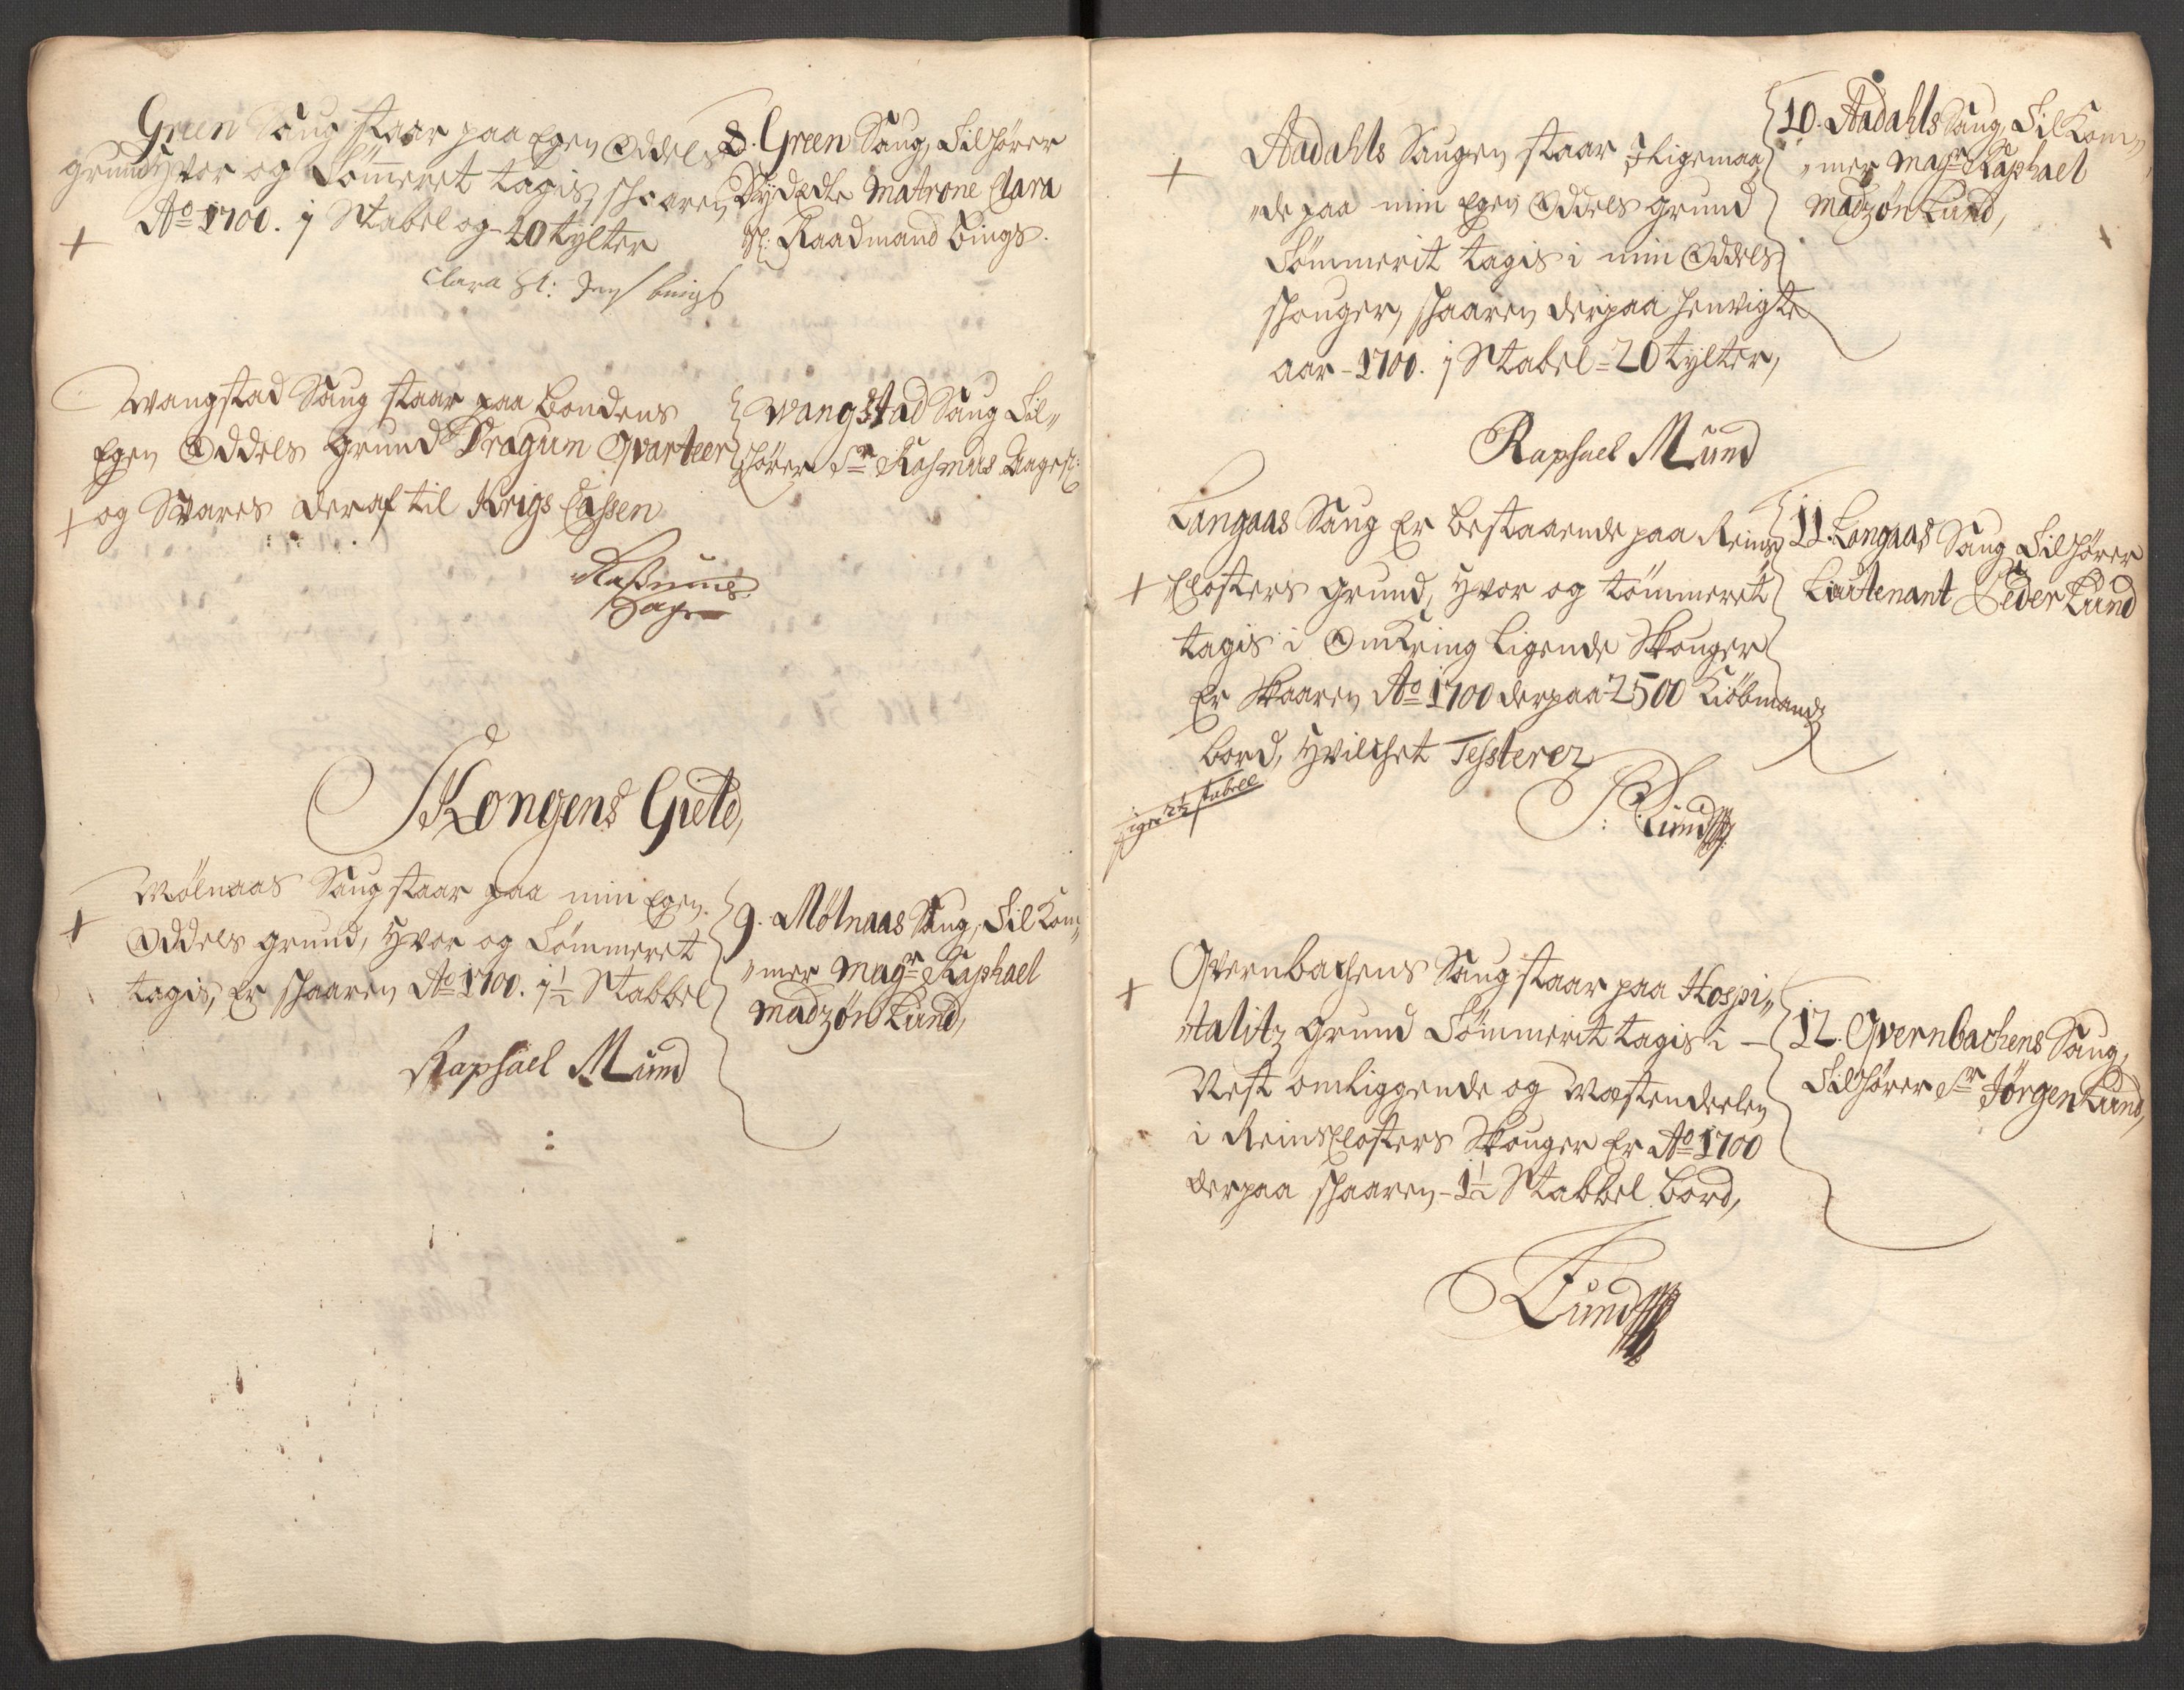 Green Saug staar paa Egen Oddels
grund, hvor og Tømmeret tagis, schaaren
Ao 1700. 1 Stabel og 40 tylter
Clara Sl: Jens bings
8. Green Saug, Tilhører
Dydædle Matrone Clara
Sl: Raadmand Bings.
Wangstad Saug staar paa bondens
Egen Oddels grund Dragun Qvarteer
og Svares deraf til Krigs Cassen
Rasmus
Hagen
Wangstad Saug Til„
hører Sr Rasmus Hagen
Kongens Gield,
Mølnaas Saug staar paa min Egen
Oddels grund, hvor og Tømmeret
tagis, Er schaaren Ao 1700. 1½ Stabbel
Raphael M Lund
9. Mølnaas Saug, Til Kam„
„mer Mayr Raphael
Madzøn Lund,
Aadahls Saugen staar Jligemaa„
„de paa min Egen Oddels grund
Tømmerit tagis i min Oddels
schouger, schaaren derpaa henvigte
aar - 1700. 1 Stabel = 20 tylter,
Raphael M Lund
10. Aadahls Saug, Til Kam„
„mer Mayr Raphael
Madzøn Lund,
Langaas Saug Er bestaaende paa Reins
Closters grund, hvor og tømmeret
tagis i Omkring ligende Skouger
Er Skaaren Ao 1700 derpaa 2500 Kiøbmands
bord, hvilchet Testerer
2½ stabell
P: Lund
11. Langaas Saug Tilhører
Leutenant Peder Lund
Qvernbachens Saug staar paa Hospi„
„talitz grund Tømmerit tagis i —
Nest omliggende og Mæstendeelen
i ReinsClosters Skouger Er Ao 1700
derpaa schaaren - 1½ Stabbel bord,
J Lund
12. Qvernbachens Saug,
Tilhører Sr Jørgen Lund,